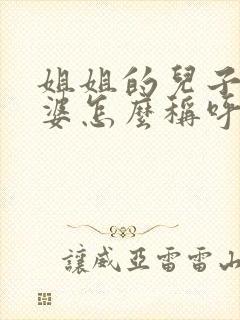 姐姐的兒子
婆怎麼稱呼
讓威亞雷雷山